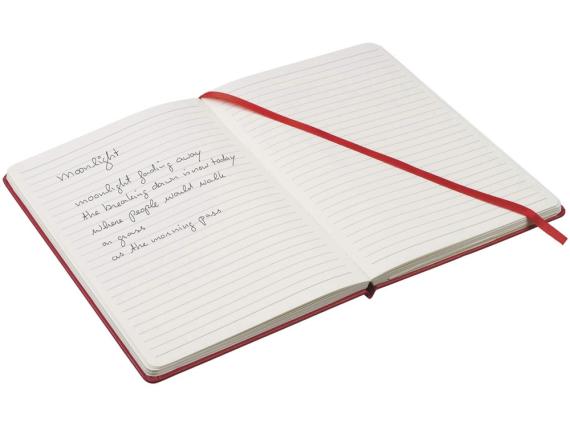 moonlight
moonlight fading away
the breaking dawn is now today
where people would walk
on grass
as the morning pass